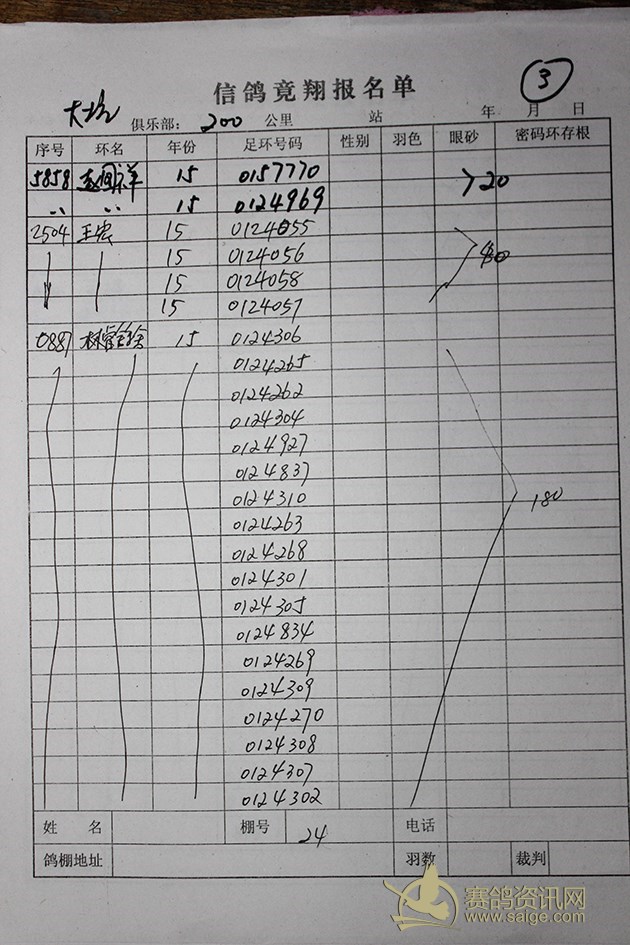 信鸽竟翔报名单 3
俱乐部: 200 公里 站 年 月 日
序号 环名 年份 足环号码 性别 羽色 眼砂 密码环存根
5858 15 0157770 >20
〃 〃 15 0124969
2504 王宏 15 0124055
15 0124056 80
15 0124058
15 0124057
0887 15 0124306
0124265
0124262
0124304
0124927
0124837
0124310 180
0124263
0124268
0124301
0124305
0124834
0124269
0124309
0124270
0124308
0124307
0124302
姓 名 棚号 24 电话
鸽棚地址 羽数 裁判
赛鸽资讯网
www.saige.com